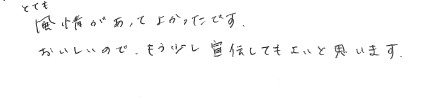 とても
風情があってよかったです.
おいしいので、もう少し宣伝してもよいと思います.